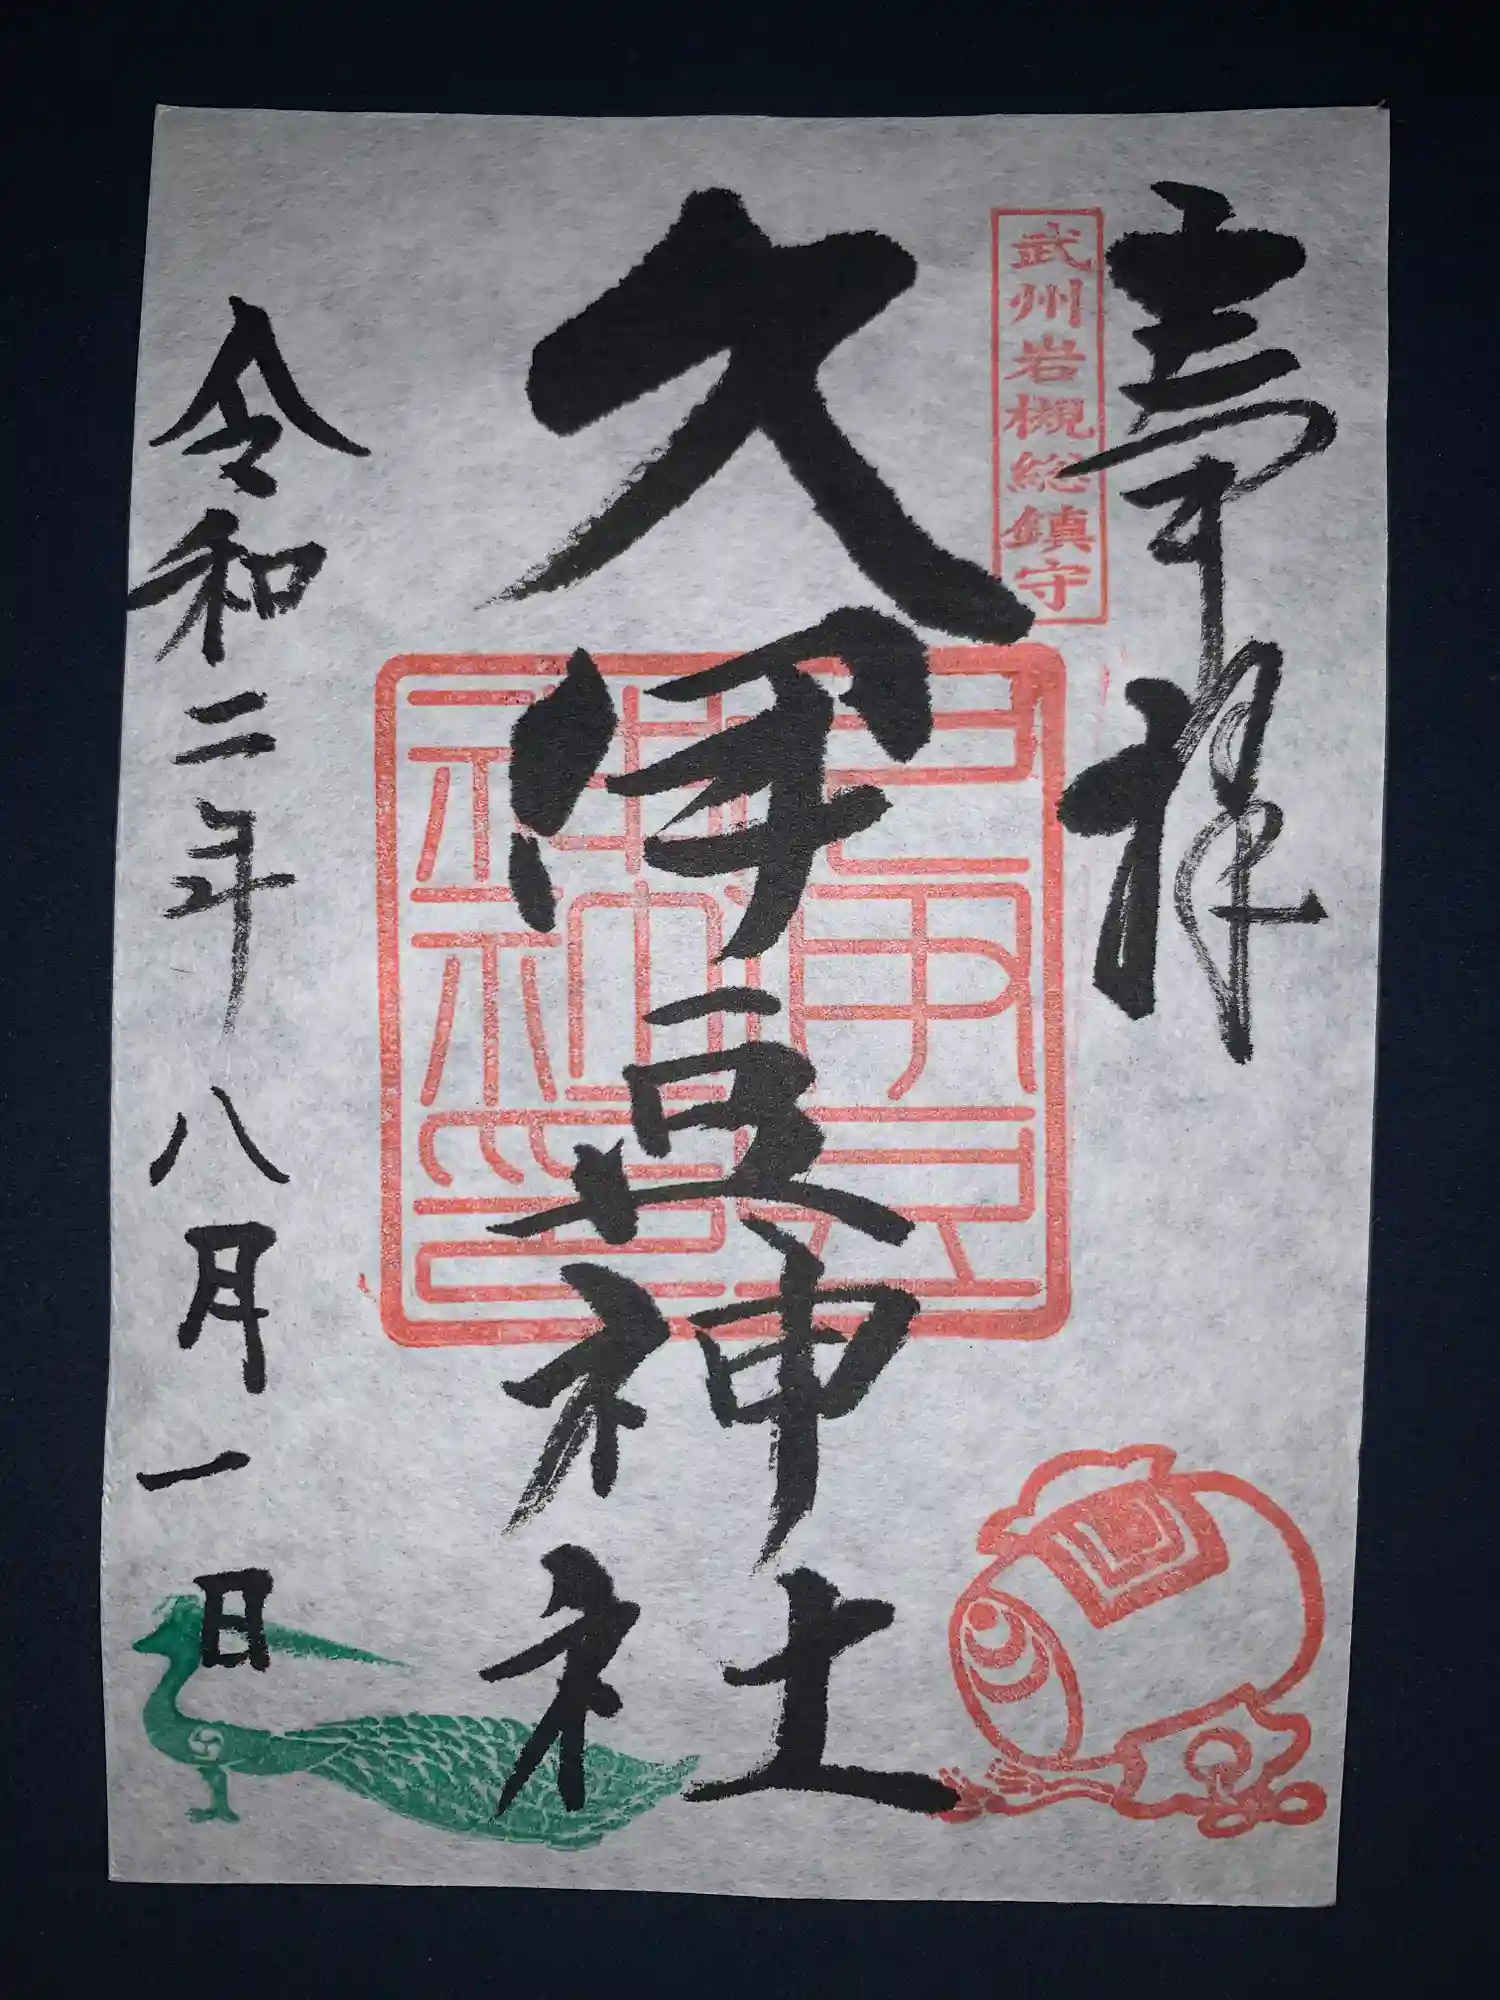 奉拝
武州岩槻総鎮守
久伊豆神社
久伊豆神社神印
令和二年八月一日